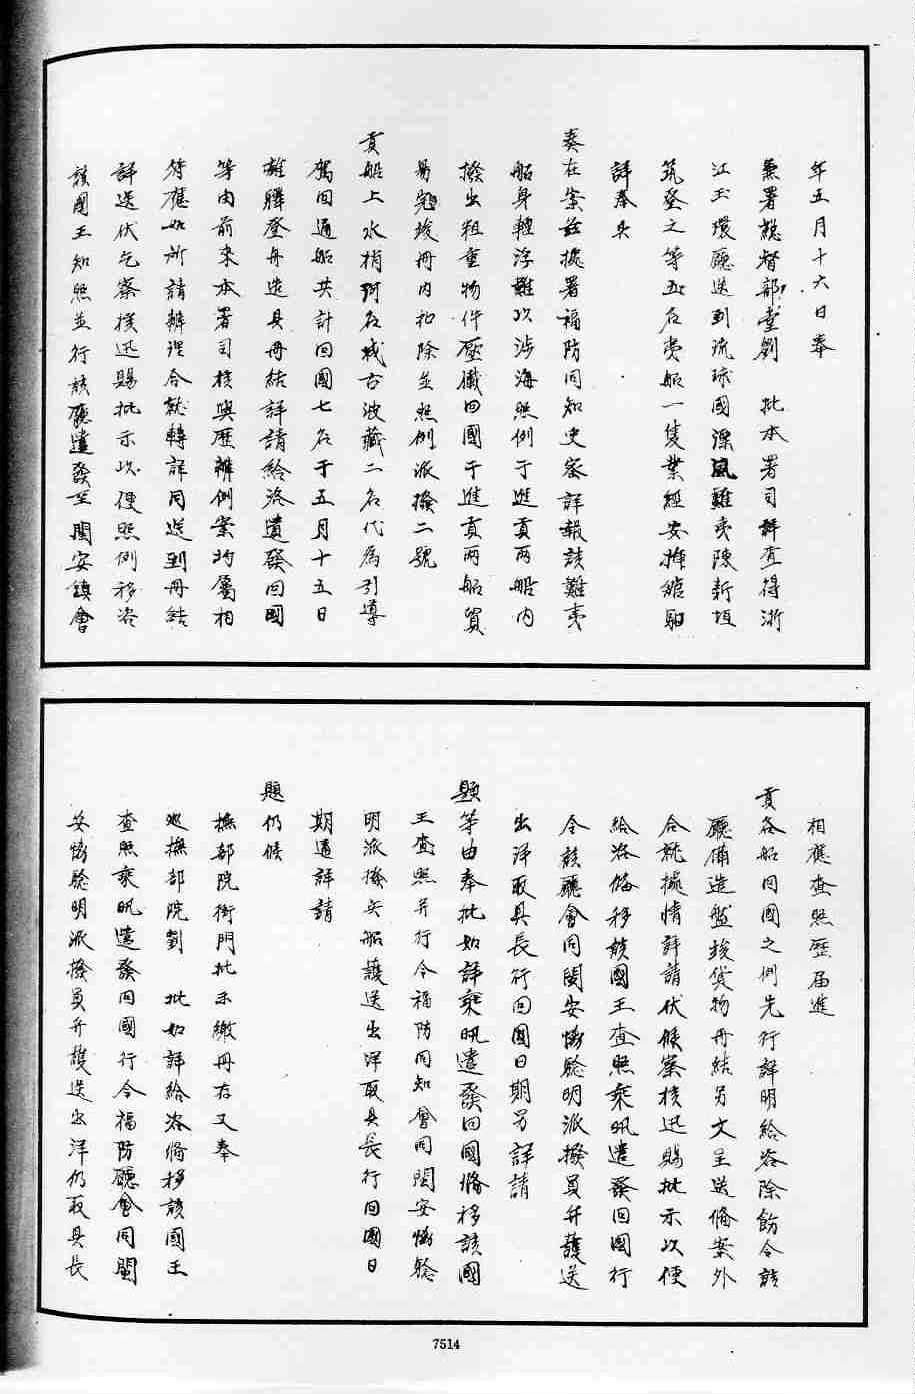 年五月十六日奉
兼署總督部堂劉 批本署司詳查得浙
江玉環廳送到琉球國漂風難夷陳新垣
筑登之等五名夷船一隻業經安揷館驛
詳奉具
奏在案玆據署福防同知史容詳報該難夷
船身輕浮難以涉海照例于進貢兩船內
撥出粗重物件壓儎回國于進貢兩船貿
易冊內扣除並照例派撥二號
貢船上水梢阿名城古波藏二名代爲引導
駕回通船共計回國七名于五月十五日
離驛登舟造具冊結詳請給咨遣發回國
等由前來本署司核與歷辦例案均屬相
符應如所請辦理合就轉詳同送到冊結
詳送伏乞察核迅賜批示以便照例移咨
該國王知照並行該廳遣發至閩安鎮會
相應查照歷屆進
貢各船回國之例先行詳明給咨除飭令該
廳備造盤驗貨物冊結另文呈送備案外
合就據情詳請伏候察核迅賜批示以便
給咨備移該國王查照乘汛遣發回國行
令該廳會同閩安協驗明派撥員弁護送
出洋取具長行回國日期另詳請
題等由奉批如詳乘汛遣發回國備移該國
王查照并行令福防同知會同閩安協驗
明派撥兵船護送出洋取具長行回國日
期通詳請
題仍候
撫部院衙門批示繳冊存又奉
巡撫部院劉 批如詳給咨備移該國王
查照乘汛遣發回國行令福防廳會同閩
安協驗明派撥員弁護送出洋仍取具長
7514